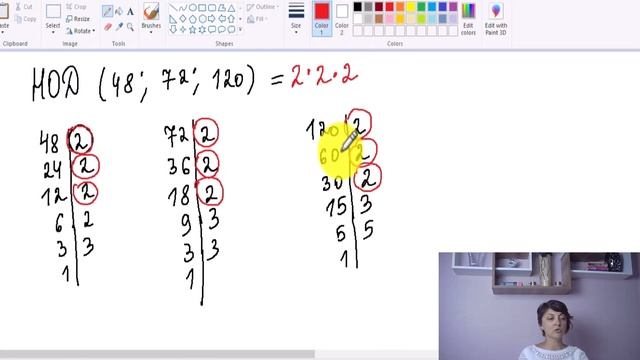 Select
Crop
Resize
Rotate
Image
Tools
Brushes
Shapes
Outline
Fill
Size
Color 1
Color 2
Colors
Edit colors
Edit with Paint 3D
НОД (48; 72; 120) = 2·2·2
48 2
24 2
12 2
6 2
3 3
1
72 2
36 2
18 2
9 3
3 3
1
120 2
60 2
30 2
15 3
5 5
1